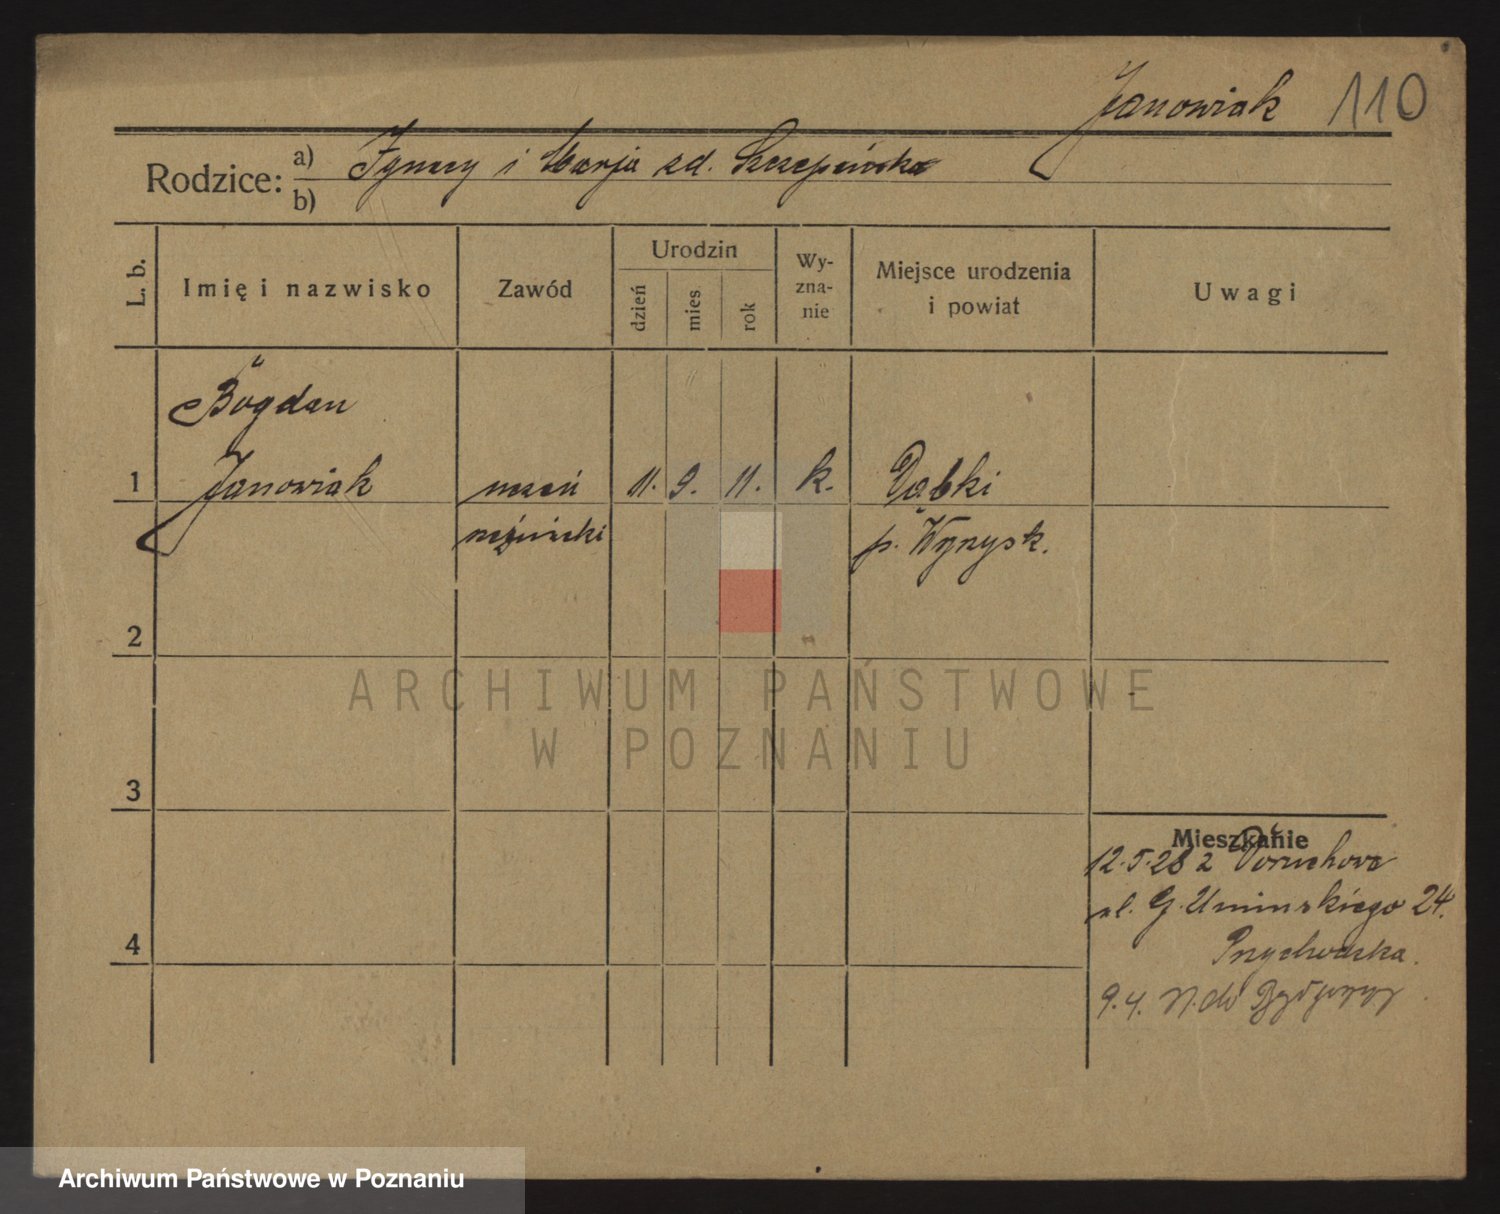 Janowiak 110
Rodzice: a) Ignacy i Marja zd. Szczepińska
b)
L. b. Imię i nazwisko Zawód Urodzin dzień mies rok Wy-zna-nie Miejsce urodzenia i powiat Uwagi
Bogdan
1 Janowiak uczeń 11. 9. 11. k. Dąbki
rzeźnicki p. Wyrzysk.
2
ARCHIWUM PAŃSTWOWE
W POZNANIU
3
Mieszkanie
12.5.28 z
ul. G. Umińskiego 24.
4
9.4. do Bydgoszczy
Archiwum Państwowe w Poznaniu